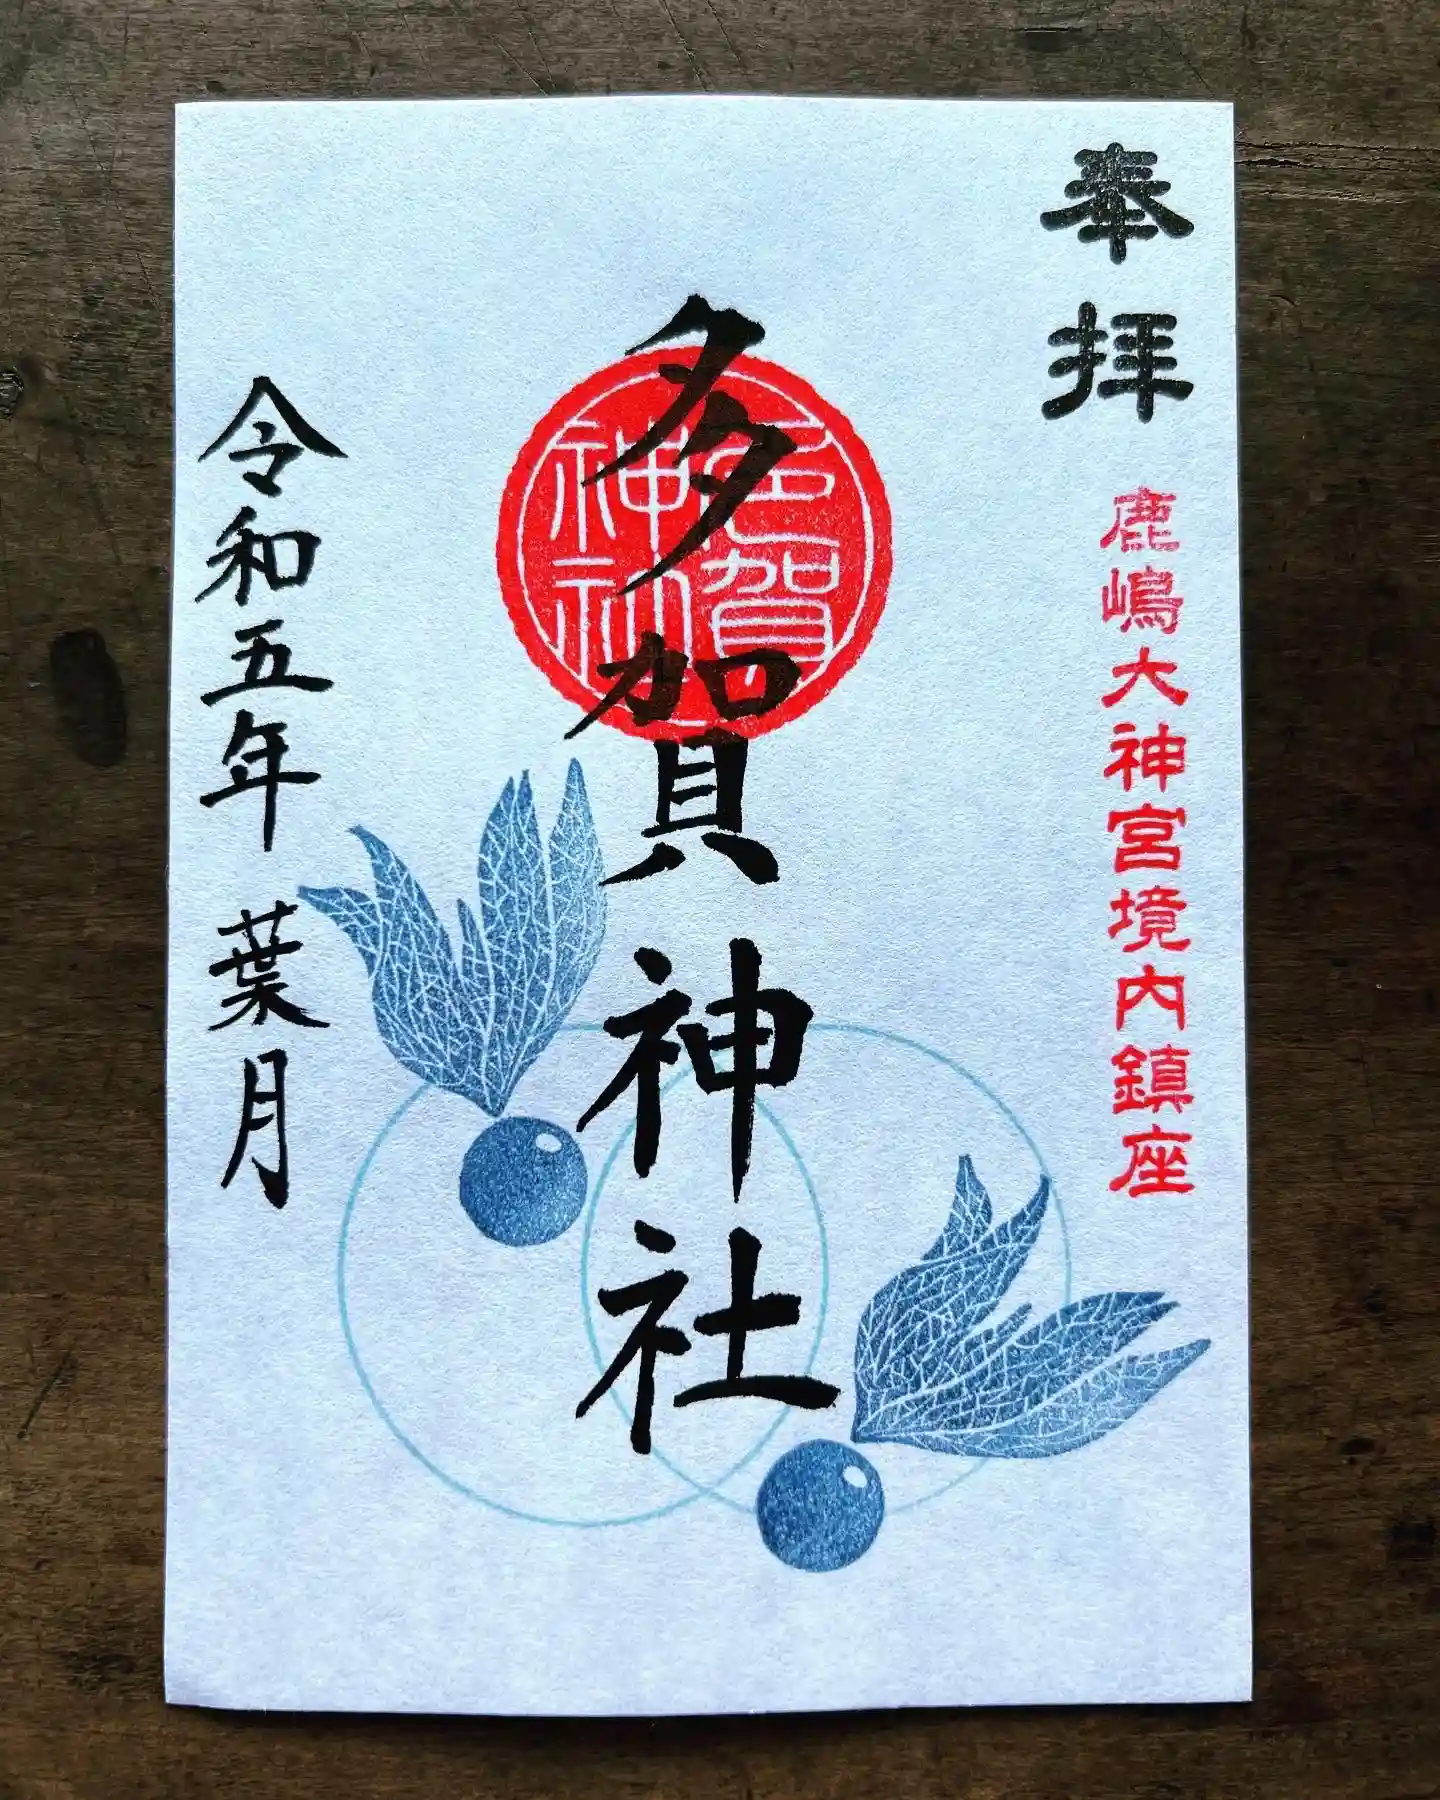 奉拝
鹿嶋大神宮境内鎮座
多賀神社
多賀
神社
令和五年 葉月